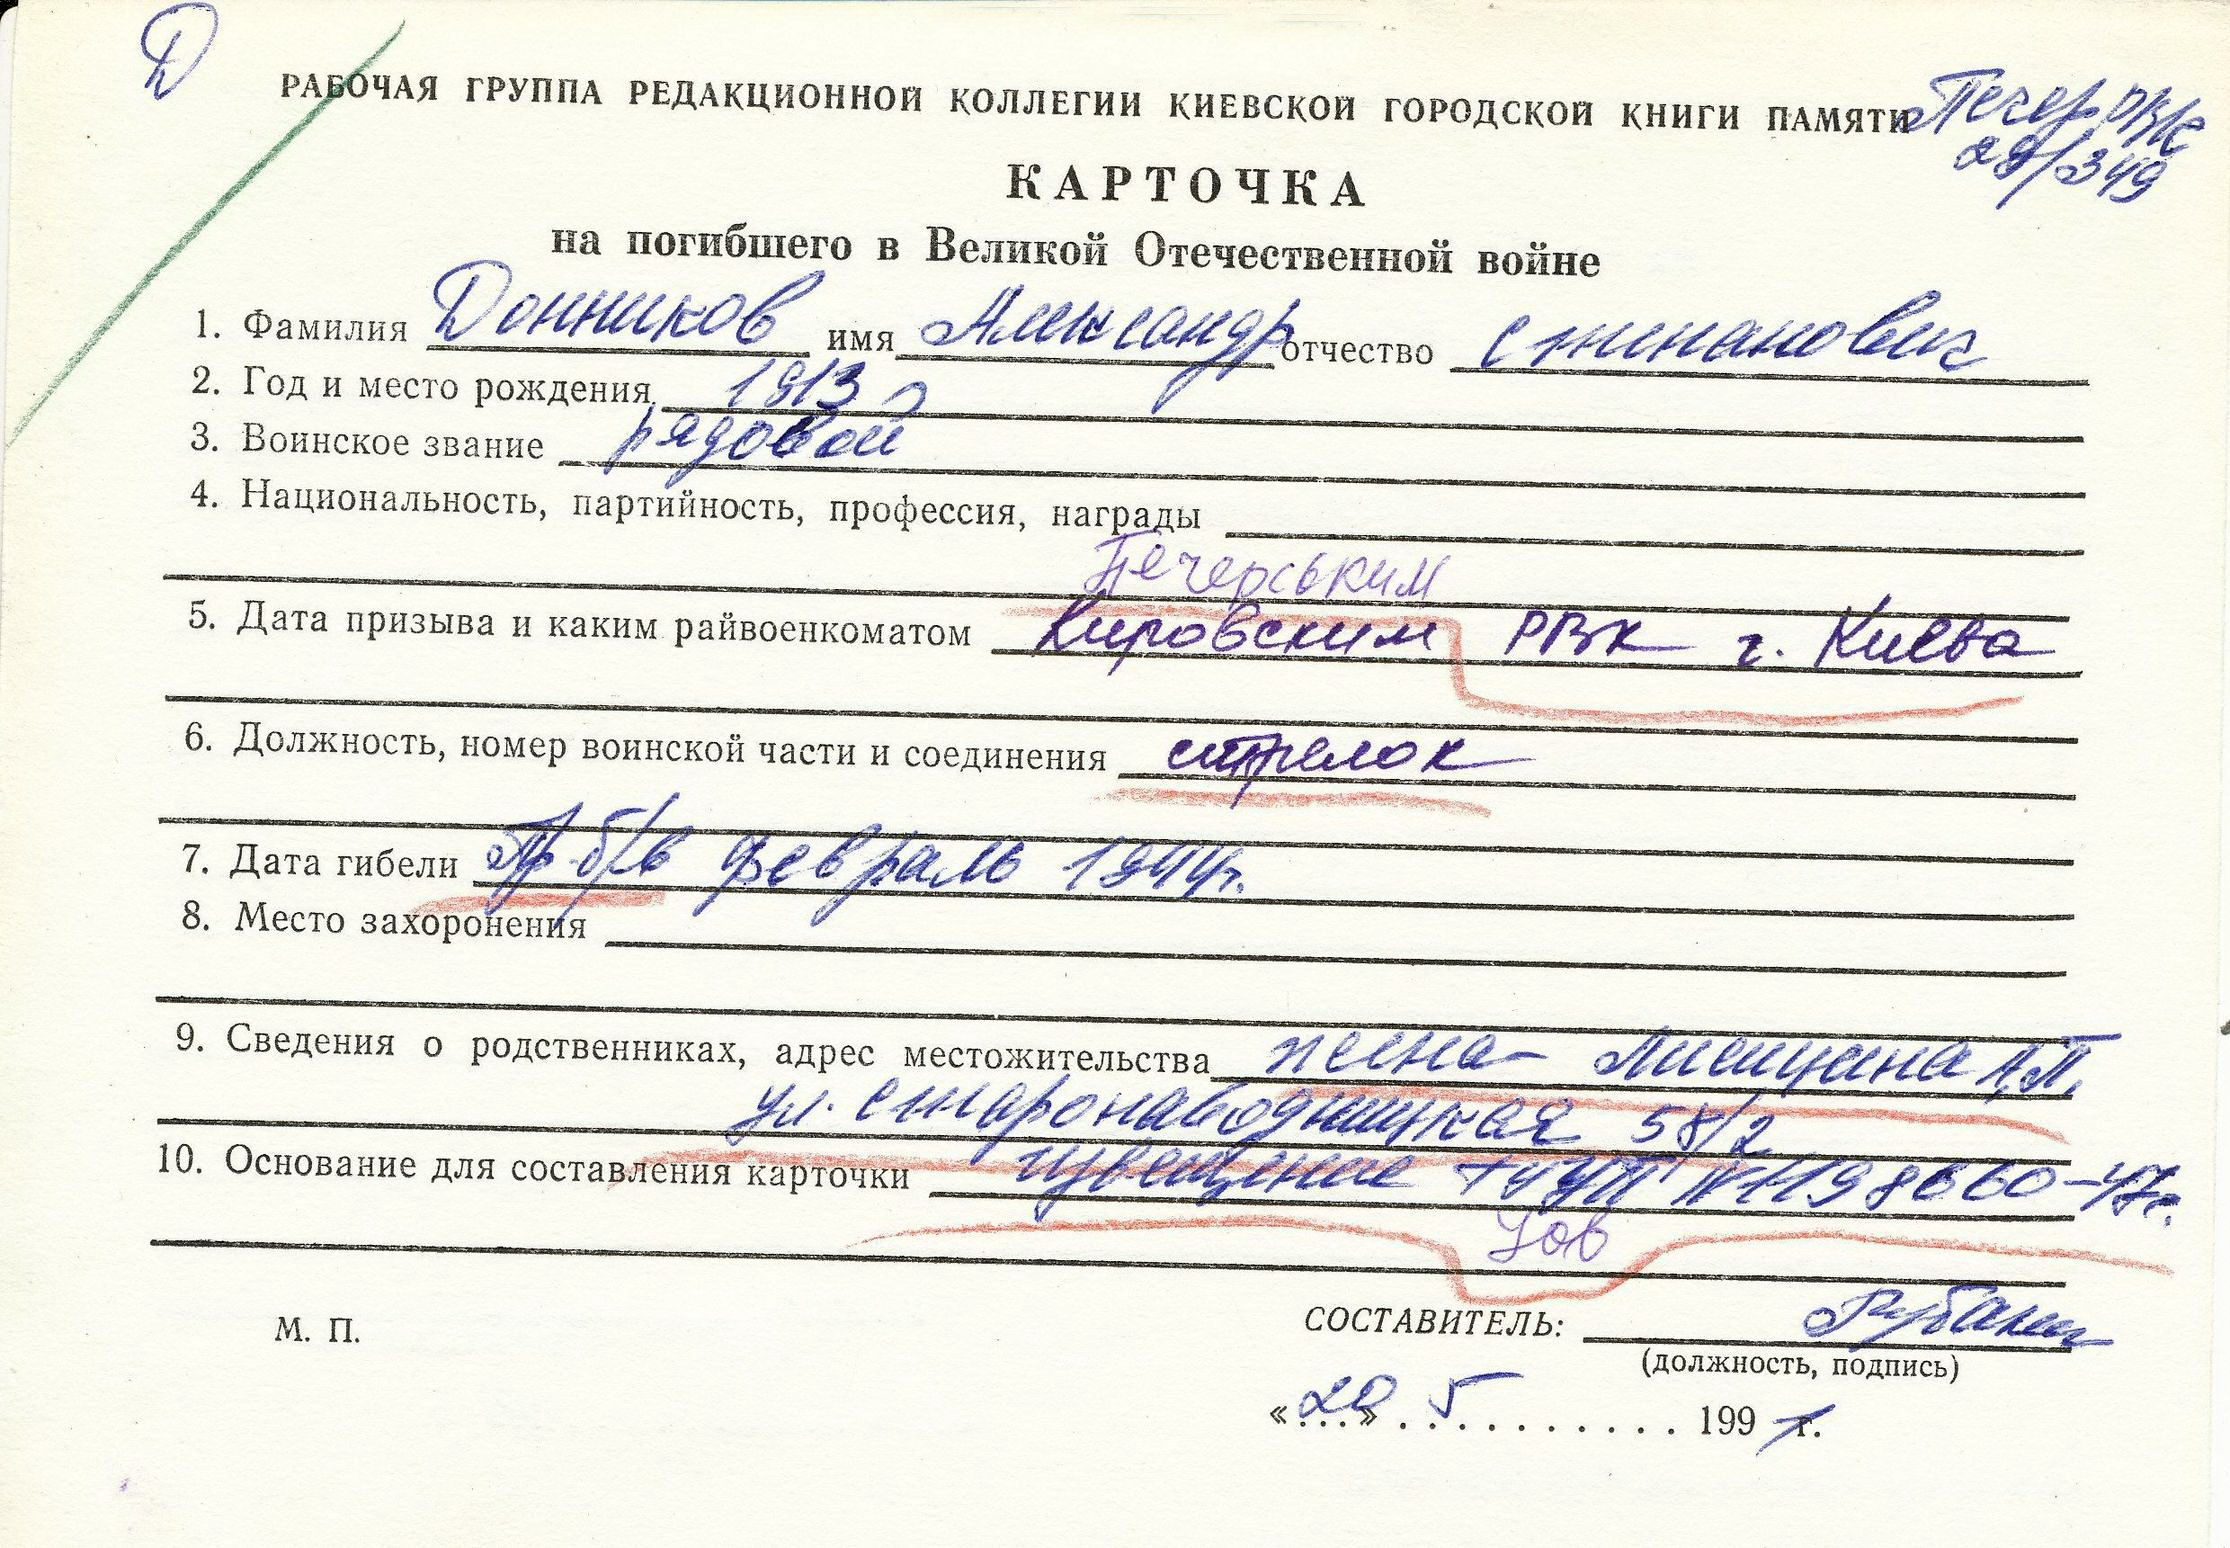 Д
РАБОЧАЯ ГРУППА РЕДАКЦИОННОЙ КОЛЛЕГИИ КИЕВСКОЙ ГОРОДСКОЙ КНИГИ ПАМЯТИ Печер РВК
29/349
КАРТОЧКА
на погибшего в Великой Отечественной войне
1. Фамилия Донников имя Александр отчество Степанович
2. Год и место рождения 1913
3. Воинское звание рядовой
4. Национальность, партийность, профессия, награды
Печерським
5. Дата призыва и каким райвоенкоматом Кировским РВК г. Киева
6. Должность, номер воинской части и соединения стрелок
7. Дата гибели Пр. б/в февраль 1944г.
8. Место захоронения
9. Сведения о родственниках, адрес местожительства жена - А.П.
ул. Старонаводницкая 58/2
10. Основание для составления карточки извещение
М. П.
СОСТАВИТЕЛЬ:
(должность, подпись)
«20» 5 1991 г.